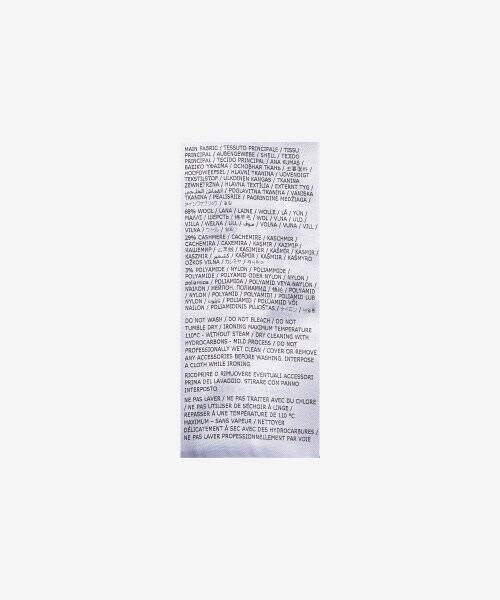 MAIN FABRIC / TESSUTO PRINCIPALE / TISSU
PRINCIPAL / AUßENGEWEBE / SHELL / TEJIDO
PRINCIPAL / TECIDO PRINCIPAL / ANA KUMAŞ /
ΒΑΣΙΚΟ ΥΦΑΣΜΑ / ОСНОВНАЯ ТКАНЬ /
HOOFDWEEFSEL / HLAVNÍ TKANINA / UDVENDIGT
TEKSTILSTOF / ULKOINEN KANGAS / TKANINA
ZEWNĘTRZNA / HLAVNÁ TEXTÍLIA / EXTERNT TYG /
/ POGLAVITNA TKANINA / VANJSKA
TKANINA / PEALISRIIE / PAGRINDINĖ MEDŽIAGA /
68% WOOL / LANA / LAINE / WOLLE / LÃ / YÜN /
ΜΑΛΛΙ / ШЕРСТЬ / 绵羊毛 / WOL / VLNA / ULD /
VILLA / WEŁNA / ULL / صوف / VOLNA / VUNA / VILL /
VILNA / ウール /
29% CASHMERE / CACHEMIRE / KASCHMIR /
CACHEMIRA / CAXEMIRA / KAŞMİR / ΚΑΣΜΙΡ /
КАШЕМИР / 山羊绒 / KASJMIER / KAŠMÍR / KASHMIR /
KASZMIR / كشمير / KAŠMIR / KAŠMIIR / KAŠMYRO
OŽKOS VILNA / カシミヤ /
3% POLYAMIDE / NYLON / POLIAMMIDE /
POLYAMIDE / POLYAMID ODER NYLON / NYLON /
poliamida / POLIAMIDA / POLYAMID VEYA NAYLON /
ΝΑΙΛΟΝ / НЕЙЛОН, ПОЛИАМИД / 锦纶 / POLYAMID
/ NYLON / POLYAMID / POLYAMIDI / POLIAMID LUB
NYLON / نايلون / POLIAMID / POLIAMIID VÕI
NAILON / POLIAMIDINIS PLUOŠTAS / ナイロン /
DO NOT WASH / DO NOT BLEACH / DO NOT
TUMBLE DRY / IRONING MAXIMUM TEMPERATURE
110°C - WITHOUT STEAM / DRY CLEANING WITH
HYDROCARBONS - MILD PROCESS / DO NOT
PROFESSIONALLY WET CLEAN / COVER OR REMOVE
ANY ACCESSORIES BEFORE WASHING. INTERPOSE
A CLOTH WHILE IRONING.
RICOPRIRE O RIMUOVERE EVENTUALI ACCESSORI
PRIMA DEL LAVAGGIO. STIRARE CON PANNO
INTERPOSTO.
NE PAS LAVER / NE PAS TRAITER AVEC DU CHLORE
/ NE PAS UTILISER DE SÉCHOIR À LINGE /
REPASSER À UNE TEMPÉRATURE DE 110 °C
MAXIMUM – SANS VAPEUR / NETTOYER
DÉLICATEMENT À SEC AVEC DES HYDROCARBURES /
NE PAS LAVER PROFESSIONNELLEMENT PAR VOIE